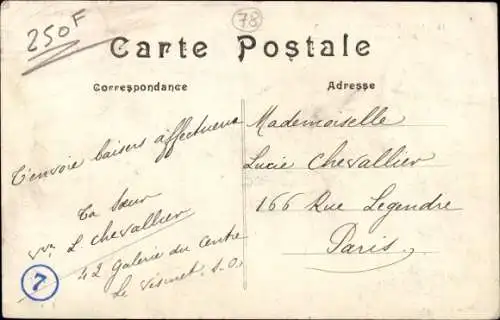 250F
78
Carte Postale
Correspondance
Adresse
T'envoie baisers affectueux
Ta sœur
L Chevallier
42 Galerie du Centre
Le Vésinet. S.O
7
Mademoiselle
Lucie Chevallier
166 Rue Legendre
Paris